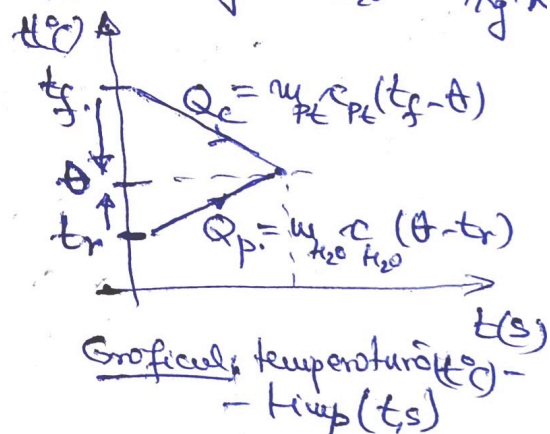 t(°C)
t_f
Q_c = m_Pt c_Pt (t_f - θ)
θ
t_r
Q_p = m_H2O c_H2O (θ - t_r)
t(s)
Graficul temperatură(t°C) -
- timp (t,s)